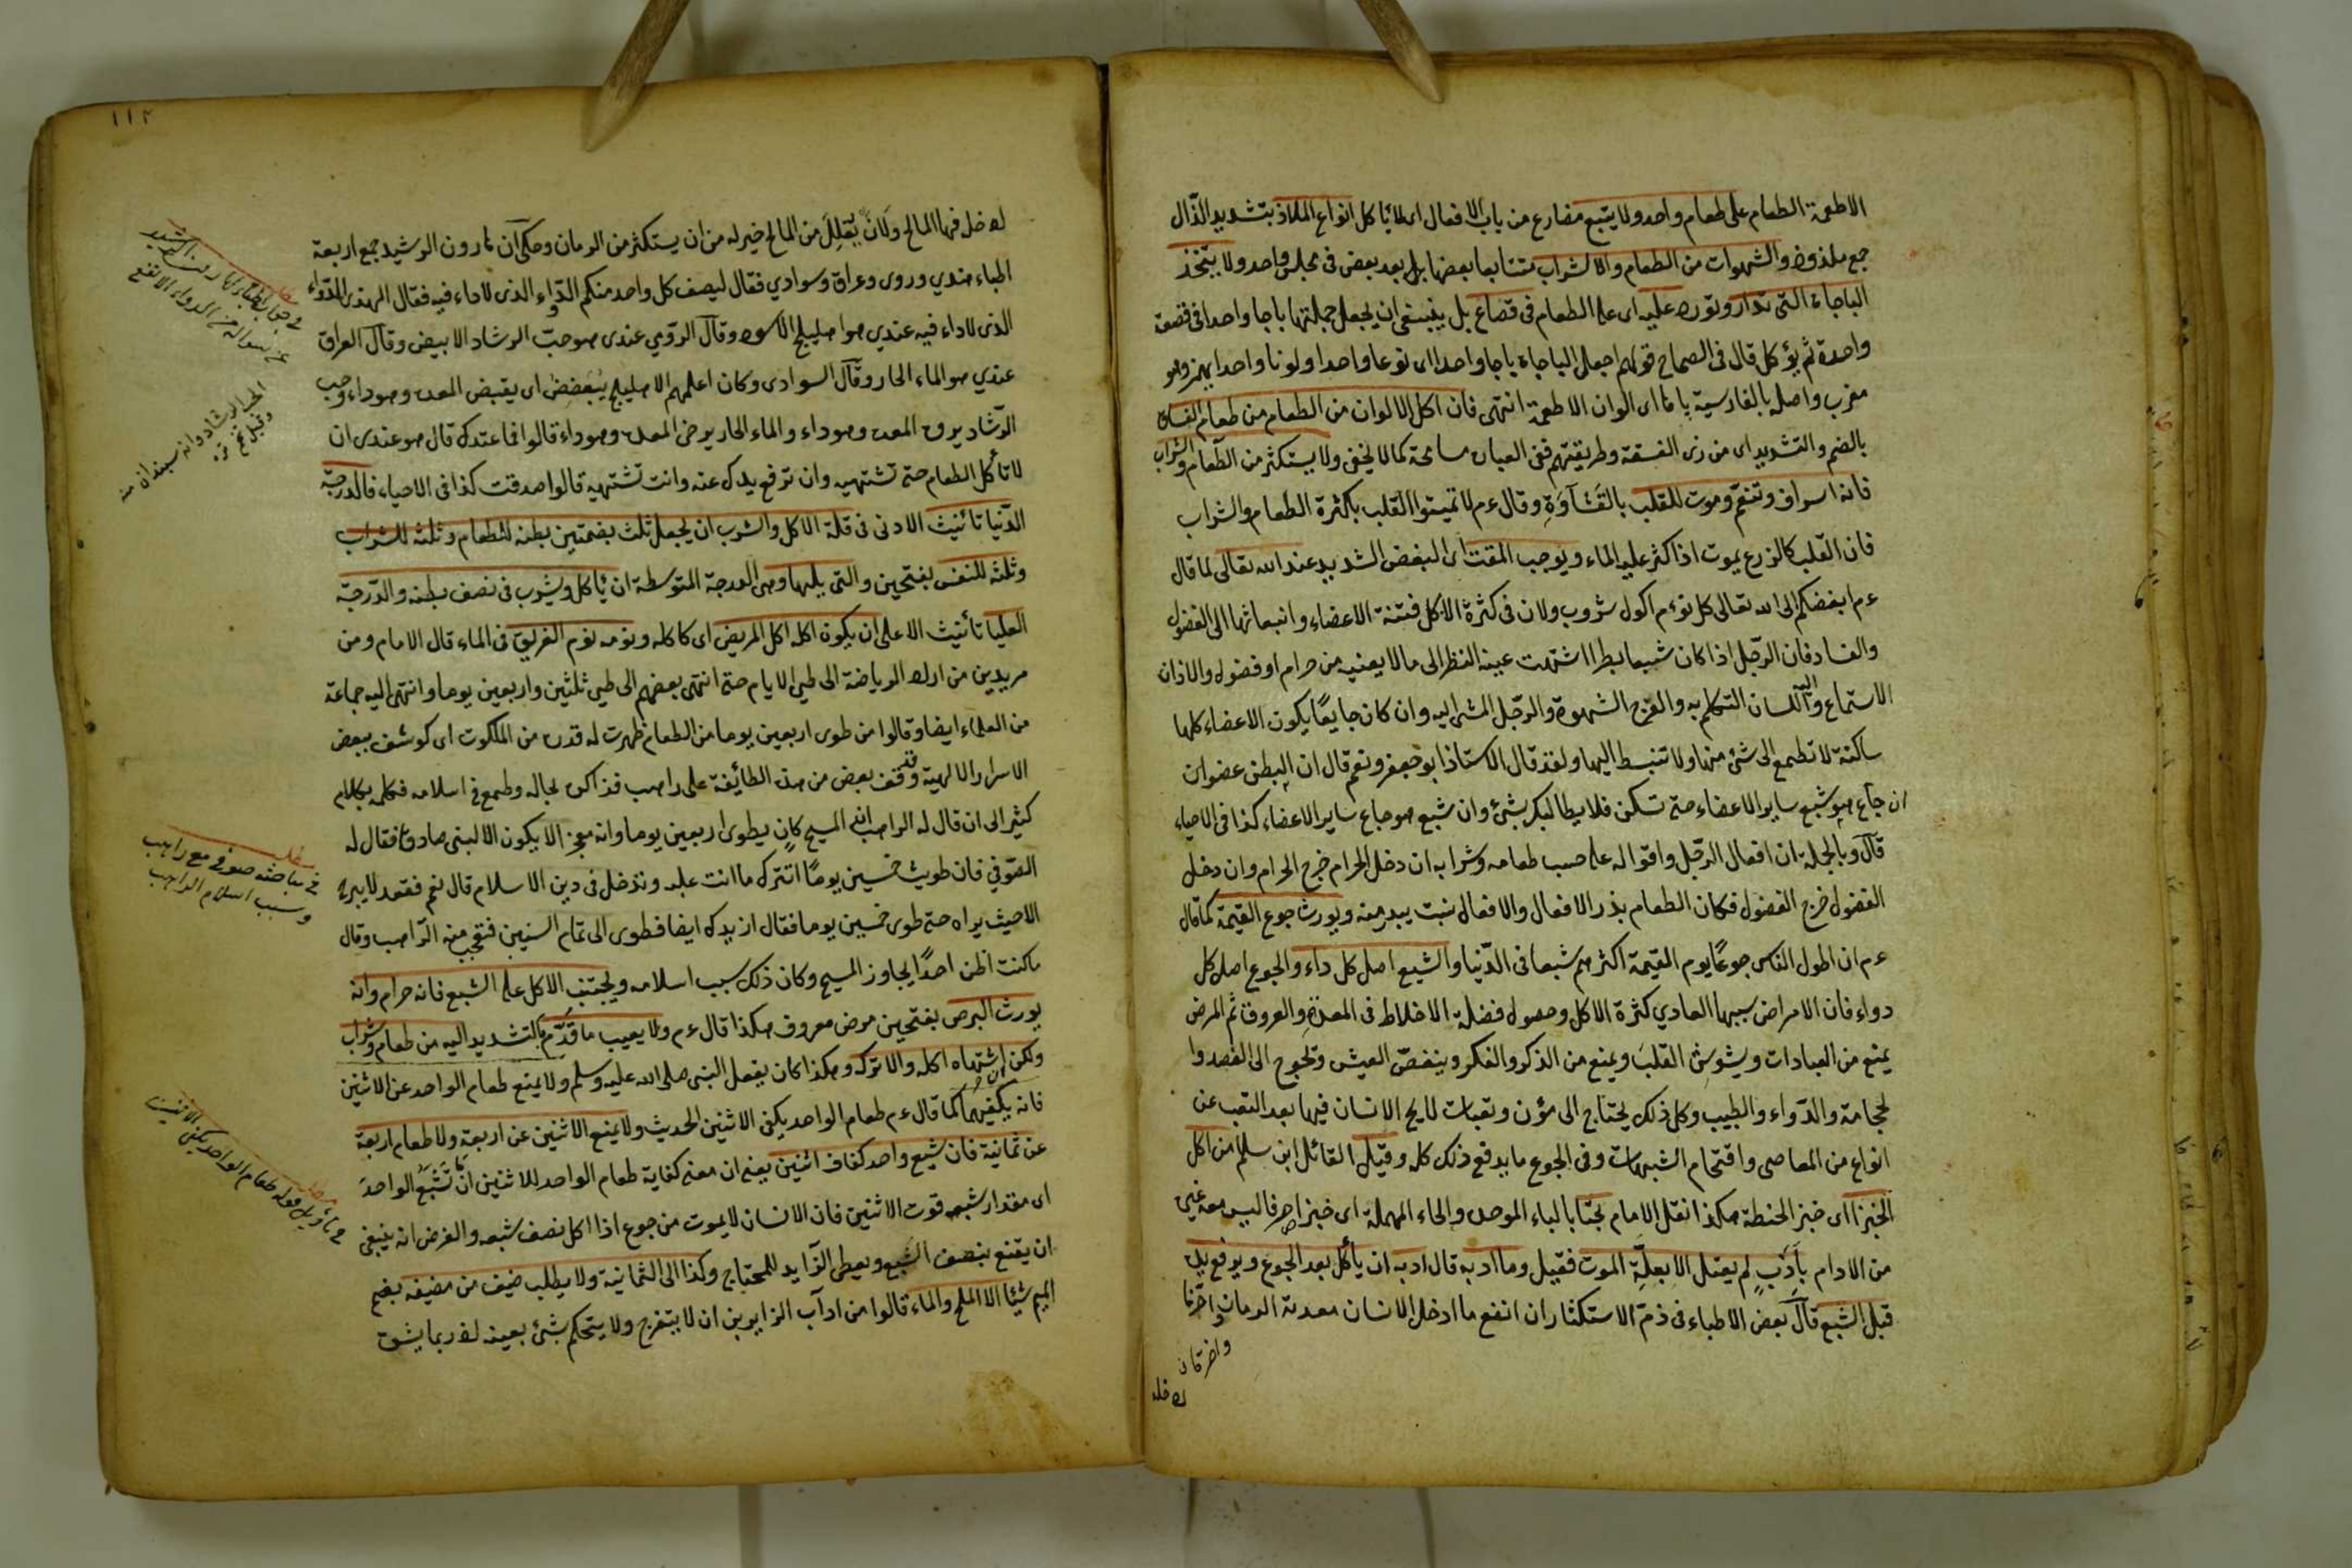 الاطعمة الطعام على طعام واحد ولا يتبع مضارع من باب الافعال اى لا يأكل انواع الملاذ بتشديد الذال
جمع ملذوذ والشهوات من الطعام والشراب متتابعا بعضها بل بعد بعض فى مجلس واحد ولا يتخذ
الباجاة التى تدار وتوره عليه اى على الطعام فى قصاع بل ينبغى ان يجعل جملتها باجا واحدا فى قصعة
واحدة ثم يؤكل قال فى الصحاح قولهم اجعل الباجاة باجا واحدا اى نوعا واحدا ولونا واحدا يهمز وهو
معرب واصله بالفارسية باها اى الوان الاطعمة انتهى فان اكل الالوان من الطعام من طعام الفساق
بالضم والتشديد اى من زى الفسقة وطريقتهم ففى العبارة مسامحة كما لا يخفى ولا يستكثر من الطعام والشراب
فانه اسراف وتنعم وموت للقلب بالقساوة وقال ءم لا تميتوا القلب بكثرة الطعام والشراب
فان القلب كالزرع يموت اذا كثر عليه الماء ويوجب المقت اى البغض الشديد عند الله تعالى لما قال
ءم ابغضكم الى الله تعالى كل نؤم اكول شروب ولان فى كثرة الاكل فتنة الاعضاء وانبعاثها الى الفضول
والفساد فان الرجل اذا كان شبعا بطرا اشتهت عينه النظر الى ما لا يعنيه من حرام او فضول والاذان
الاستماع اليه واللسان التكلم به والفرج الشهوة والرجل المشى اليه وان كان جايعا يكون الاعضاء كلها
ساكنة لا تطمع الى شئ منها ولا تنبسط اليها ولقد قال الاستاذ ابو جعفر ونعم قال ان البطن عضو ان
ان جاع هو شبع ساير الاعضاء حتى تسكن فلا يطالبك بشئ وان شبع هو جاع ساير الاعضاء كذا فى الاحياء
قال وبالجملة ان افعال الرجل واقواله على حسب طعامه وشرابه ان دخل الحرام خرج الحرام وان دخل
الفضول خرج الفضول فكان الطعام بذر الافعال والافعال نبت يبدر منه ويورث جوع القيمة كما قال
ءم ان اطول الناس جوعا يوم القيمة اكثرهم شبعا فى الدنيا والشبع اصل كل داء والجوع اصل كل
دواء فان الامراض سببها العادي كثرة الاكل وحصول فضلة الاخلاط فى المعدة والعروق ثم المرض
يمنع من العبادات ويشوش القلب ويمنع من الذكر والفكر وينغص العيش ويحوج الى الفصد وا
لحجامة والدواء والطبيب وكل ذلك يحتاج الى مؤن وتبعات لا يخ الانسان فيها بعد التعب عن
انواع من المعاصى واقتحام الشبهات وفى الجوع ما يدفع ذلك كله وقيل القائل ابن سالم من اكل
الخبز اى خبز الحنطة هكذا نقل الامام بحتا بالباء الموحدة والحاء المهملة اى خبزا صرفا ليس معه شئ
من الادام بأدب لم يعتل الا بعلة الموت فقيل وما ادبه قال ادبه ان يأكل بعد الجوع ويرفع يده
قبل الشبع قال بعض الاطباء فى ذم الاستكثار ان انفع ما ادخل الانسان معدته الرمان واضر ما
واضر ما ن
ادخله
١١٢
ادخل فيها المالح ولان يقلل من المالح خير له من ان يستكثر من الرمان وحكى ان هارون الرشيد جمع اربعة
اطباء هندي ورومى وعراقى وسوادي فقال ليصف كل واحد منكم الدواء الذى لا داء فيه فقال الهندى الدواء
الذى لا داء فيه عندي هو اهليلج الاسود وقال الرومي عندى هو حب الرشاد الابيض وقال العراقى
عندي هو الماء الحار وقال السوادى وكان اعلمهم الاهليلج يعفص اى يقبض المعدة وهو داء وحب
الرشاد يرق المعدة وهو داء والماء الحار يرخى المعدة وهو داء قالوا فما عندك قال هو عندى ان
لا تأكل الطعام حتى تشتهيه وان ترفع يدك عنه وانت تشتهيه قالوا صدقت كذا فى الاحياء فالدرجة
الدنيا تأنيث الادنى فى قلة الاكل والشرب ان يجعل ثلث بضمتين بطنه للطعام وثلثه للشراب
وثلثه للنفس بفتحين والتى يليها وهى الدرجة المتوسطة ان يأكل ويشرب فى نصف بطنه والدرجة
العليا تأنيث الاعلى ان يكون اكله اكل المريض اى كاكله ونومه نوم الغريق فى الماء قال الامام ومن
مريدين من ارد الرياضة الى طي الايام حتى انتهى بعضهم الى طي ثلثين واربعين يوما وانتهى اليه جماعة
من العلماء ايضا وقالوا من طوى اربعين يوما من الطعام ظهرت له قدرة من الملكوت اى كوشف ببعض
الاسرار الالهية وقد وقف بعض من هذه الطائفة على راهب فذاكره بحاله وطمع فى اسلامه فكلمه بكلام
كثير الى ان قال له الراهب ان المسيح كان يطوى اربعين يوما وانه معجزة لا يكون الا لنبى صادق فقال له
الصوفي فان طويت خمسين يوما اتترك ما انت عليه وتدخل فى دين الاسلام قال نعم فقعد لا يبرح
الا حيث يراه حتى طوى خمسين يوما فقال ازيدك ايضا فطوى الى تمام الستين فتعجب منه الراهب وقال
ما كنت اظن احدا يجاوز المسيح وكان ذلك سبب اسلامه ويجتنب الاكل على الشبع فانه حرام وانه
يورث البرص بفتحين مرض معروف هكذا قال ءم ولا يعيب ما قدم بالتشديد اليه من طعام وشراب
ولكن ان اشتهاه اكله والا تركه وهكذا كان يفعل النبى صلى الله عليه وسلم ولا يمنع طعام الواحد عن الاثنين
فانه يكفيهما كما قال ءم طعام الواحد يكفى الاثنين الحديث ولا يمنع الاثنين عن اربعة ولا طعام اربعة
عن ثمانية فان شبع واحد كفاف اثنين يعنى ان معنى كفاية طعام الواحد للاثنين ان ما تشبع الواحد
اى مقدار شبعه قوت الاثنين فان الانسان لا يموت من جوع اذا اكل نصف شبعه والغرض انه ينبغى
ان يقنع بنصف الشبع ويعطى الزايد للمحتاج وكذا الى الثمانية ولا يطلب ضيف من مضيفه بضم
الميم شيئا الا الملح والماء قالوا من ادآب الزايرين ان لا يقترح ولا يتحكم بشئ بعينه اذ ربما يشق
مطلب
فى جواب الاطباء لهارون الرشيد
عن سؤاله من الدواء الانفع
مطلب
فى مباحثة صوفى مع راهب
وسبب اسلام الراهب
مطلب
فى تأويل قوله طعام الواحد يكفى الاثنين